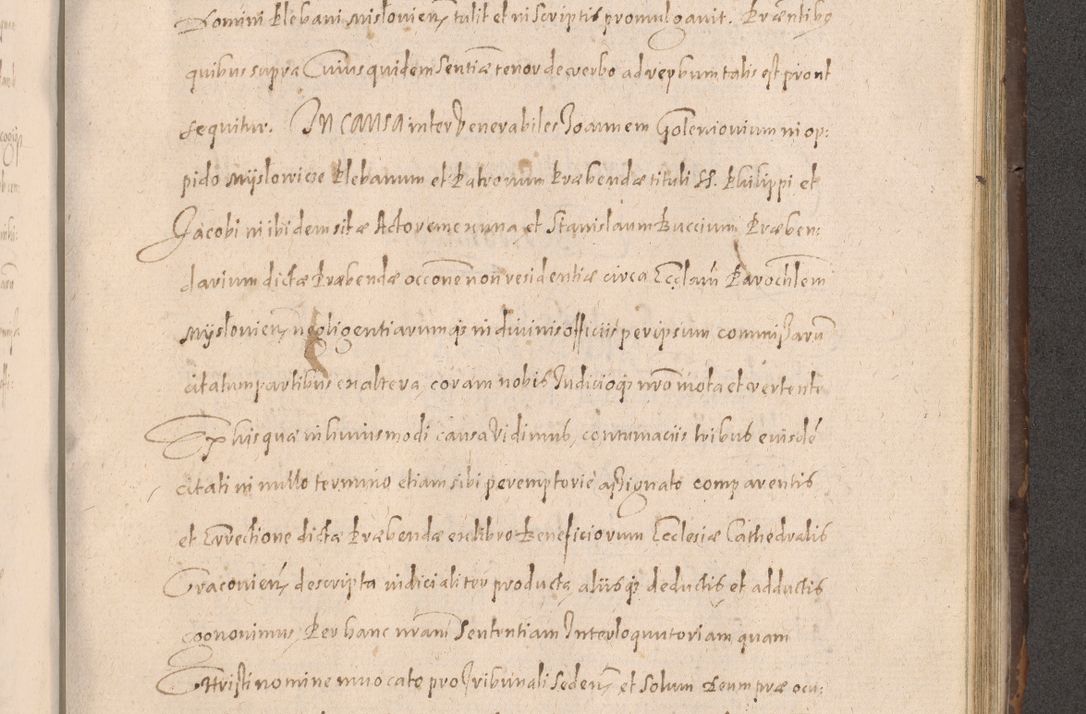 Domini Plebani Mislovien, tulit et in scriptis promulgavit. Præntibq
quibus supra Cuius quidem Sentiæ tenor de verbo ad verbum talis est prout
sequitur. IN CAUSA inter Venerabiles Joannem Goleniovium in op:
pido Mÿslowicze Plebanum et Patronum Præbendæ tituli SS. Philippi et
Jacobi in ibidem sitæ Actorem ex una, et Stanislaum Buccium Præben:
darium dictæ Præbendæ occõne non residentiæ circa Ecclam Parochlem
Mÿslovien, negligentiarumq; in divinis officiis per ipsum commißarũ
citatum partibus ex altera, coram nobis Judicioq; nrõ mota et vertente
Ex his quæ in huiusmodi causa Vidimus, contumaciis tribus eiusdẽ
citati in nullo termino etiam sibi peremptorie aßignato comparentis
et Errectione dictæ Præbendæ ex libro Beneficiorum Ecclesiæ Cathedralis
Cracovien, descripta iudicialiter producta aliisq; deductis et adductis
cognovimus, Per hanc nram Sententiam Interloquutoriam quam
Christi nomine invocato pro Tribunali Seden, et Solum Deum præ ocu: